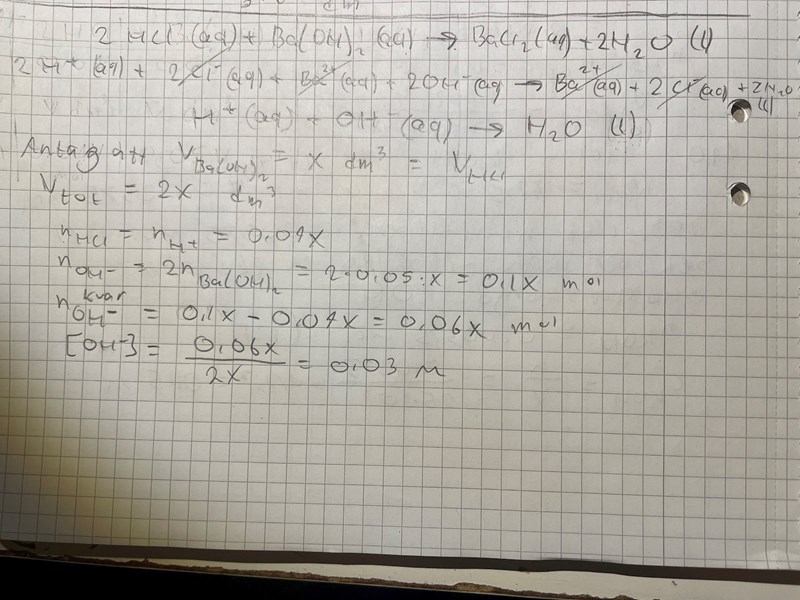 2 HCl (aq) + Ba(OH)₂ (aq) → BaCl₂(aq) + 2H₂O (l)
2 H⁺ (aq) + 2Cl⁻ (aq) + Ba²⁺ (aq) + 2OH⁻ (aq) → Ba²⁺ (aq) + 2 Cl⁻ (aq) + 2H₂O (l)
H⁺ (aq) + OH⁻ (aq) → H₂O (l)
Antag att V_Ba(OH)₂ = x dm³ = V_HCl
V_tot = 2x dm³
n_HCl = n_H⁺ = 0.04x
n_OH⁻ = 2n_Ba(OH)₂ = 2·0.05·x = 0,1x mol
n_OH⁻^kvar = 0,1x - 0.04x = 0,06x mol
[OH⁻] = 0,06x / 2x = 0,03 M